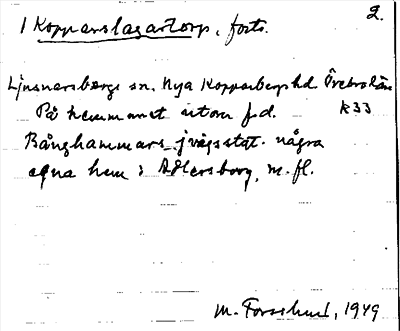 2.
1 Kopparslagartorp, forts.
Ljusnarsbergs sn. Nya Kopparbergs hd. Örebro län
På hemmanet utom f.d. R33
Bånghammars jvägsstat. några
egna hem: Adlersborg, m. fl.
M. Forsslund, 1949